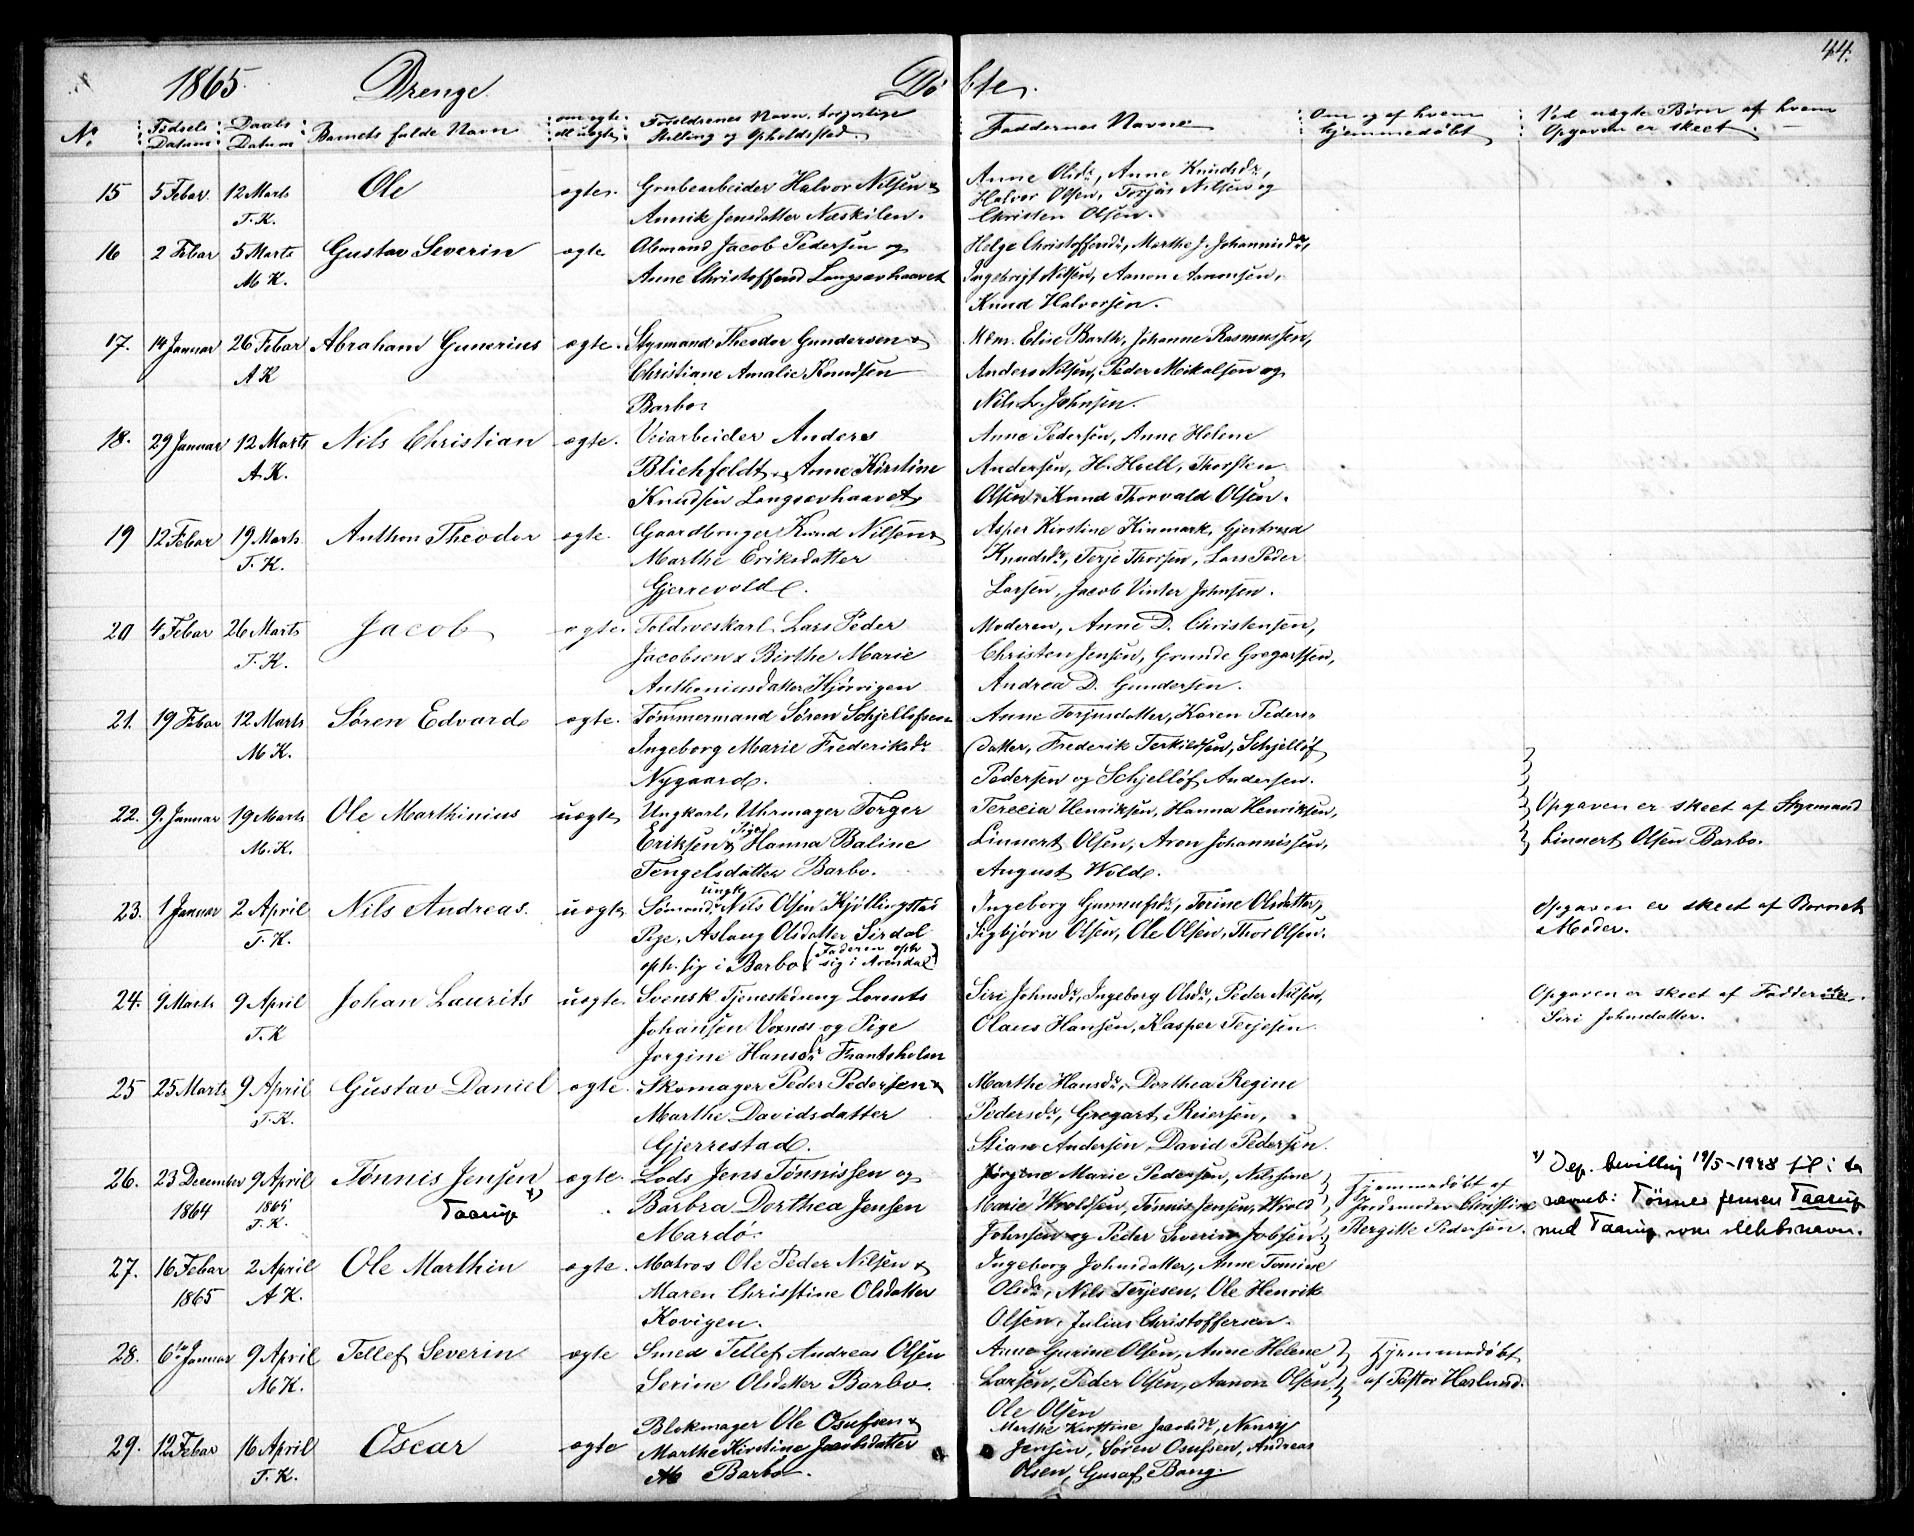 44.
1865. Drenge. Døbte.
No. Fødsels Datum Daabs Datum Barnets fulde Navn om ægte ell. uægte Forældrenes Navn, borgerlige Stilling og Opholdssted. Faddernes Navne Om og af hvem hjemmedøbt Ved uægte Børn af hvem Opgaven er skeet.
15 5 Febar. 12 Marts Ole ægte. Grubearbeider Halvor Nilsen & Anne Olsdr, Anne Knudsdr,
T.K. Annik Jensdatter Næskilen. Halvor Olsen, Torjus Nilsen og
Christen Olsen.
16 2 Febar 5 Marts Gustav Severin ægte Jacob Pedersen og Helge Christoffersdr, Marthe J. Johannisdr,
M.K. Anne Christoffersd Langsævhaavet Ingebrigt Nilsen, Aanon Aanonsen,
Knud Halvorsen.
17. 14 Januar 26 Febar Abraham Gunerius ægte. Styrmand Theodor Gundersen & Elise Barth, Johanne Rasmussen,
A K Christiane Amalie Knudsen Anders Nilsen, Peder Meikalsen og
Barbo. Nils L. Johnsen.
18. 29 Januar 12 Marts Nils Christian ægte. Veiarbeider Anders Anne Pedersen, Anne Helene
A.K. Blichfeldt & Anne Kirstine Andersen, H. Hvell, Thorsten
Knudsen Langsævhaavet Olsen, Knud Thorvald Olsen.
19 12 Febar 19 Marts Anthon Theodor ægte. Gaardbruger Knud Nilsen & Asper Kirstine Kinmark, Gjertrud
T.K. Marthe Eriksdatter Knudsdr, Terje Thorsen, Lars Peder
Gjerrevold. Larsen, Jacob Vinter Johnsen.
20 4 Febar 26 Marts Jacob ægte. Toldveskarl Lars Peder Moderen, Anne D. Christensen,
T.K. Jacobsen & Birthe Marie Christen Jensen, Grunde Gregertsen,
Anthoniusdatter Hjørvigen Andrea D. Gundersen.
21. 19 Febar 12 Marts Søren Edvard ægte. Tømmermand Søren Schjelløfsen Anne Torjusdatter, Karen Peders-
M.K. Ingeborg Marie Frederiksdr datter, Frederik Terkildsen, Schjelløf
Nygaard. Pedersen og Schjelløf Andersen.
22. 9. Januar 19 Marts Ole Marthinius uægte Ungkarl, Uhrmager Torger Terecia Henriksen, Hanna Henriksen, Opgaven er skeet af Styrmand
M.K. Eriksen & Pige Hanna Baline Linnert Olsen, Aron Johannissen, Linnert Olsen Barbo.
Tengelsdatter Barbo. August Wold.
23. 1 Januar 2 April Nils Andreas. uægte Sømand, ungk. Nils Olsen Kjøllingstad Ingeborg Gunnufsdr, Torine Olsdatter, Opgaven er skeet af Barnets
T.K. Pige, Aslaug Olsdatter Sirdal Sigbjørn Olsen, Ole Olsen, Thor Olsen. Moder.
oph. sig i Barbo (Faderen oph sig i Arendal)
24. 9 Marts 9 April Johan Laurits uægte. Svensk Tjenestedreng Lorents Siri Johnsdr, Ingeborg Olsdr, Peder Nilsen, Opgaven er skeet af Fadderske.
T.K Johansen Voxnæs og Pige Olaus Hansen, Kasper Terjesen Siri Johnsdatter.
Jorgine Hansdr Frantsholm
25 25 Marts 9 April Gustav Daniel ægte. Skomager Peder Pedersen & Marthe Hansdr, Dorthea Regine
T.K. Marthe Davidsdatter Pedersdr, Gregart Reiersen,
Gjerrestad. Stian Andersen, David Pedersen.
26. 23 December 9 April Tønnis Jensen x) ægte. Lods Jens Tønnissen og Jørgine Marie Pedersen, Nilsine Hjemmedøbt af x) Dep. bevilling 19/5-1948 til i ta
1864 1865 Taarup Barbra Dorthea Jensen Marie Wroldsen, Tønnis Jensen, Wrold Jordemoder Christine navnet: Tønnes Jensen Taarup
T.K. Mardø. Johnsen og Peder Severin Jobsen. Bergitte Pedersen. med Taarup som slektsnavn.
27. 16 Febar 2 April Ole Marthin ægte. Matros Ole Peder Nilsen & Ingeborg Johnsdatter, Anne Tomine
1865 A K. Maren Christine Olsdatter Olsdr, Nils Terjesen, Ole Henrik
Kovigen. Olsen, Julius Christoffersen.
28. 6te Januar 9 April Tellef Severin ægte Smed Tellef Andreas Olsen Anne Gurine Olsen, Anne Helene Hjemmedøbt
M K. Serine Olsdatter Barbo. Larsen, Peder Olsen, Aanon Olsen, af Pastor Haslund.
Ole Olsen
29. 12 Febar 16 April Oscar ægte Blokmager Ole Osufsen & Marthe Kirstine Jacobsdr, Nancy
T.K. Marthe Kirstine Jacobsdatter Jensen, Søren Osufsen, Andreas
Barbo. Olsen, Gustaf Bang.